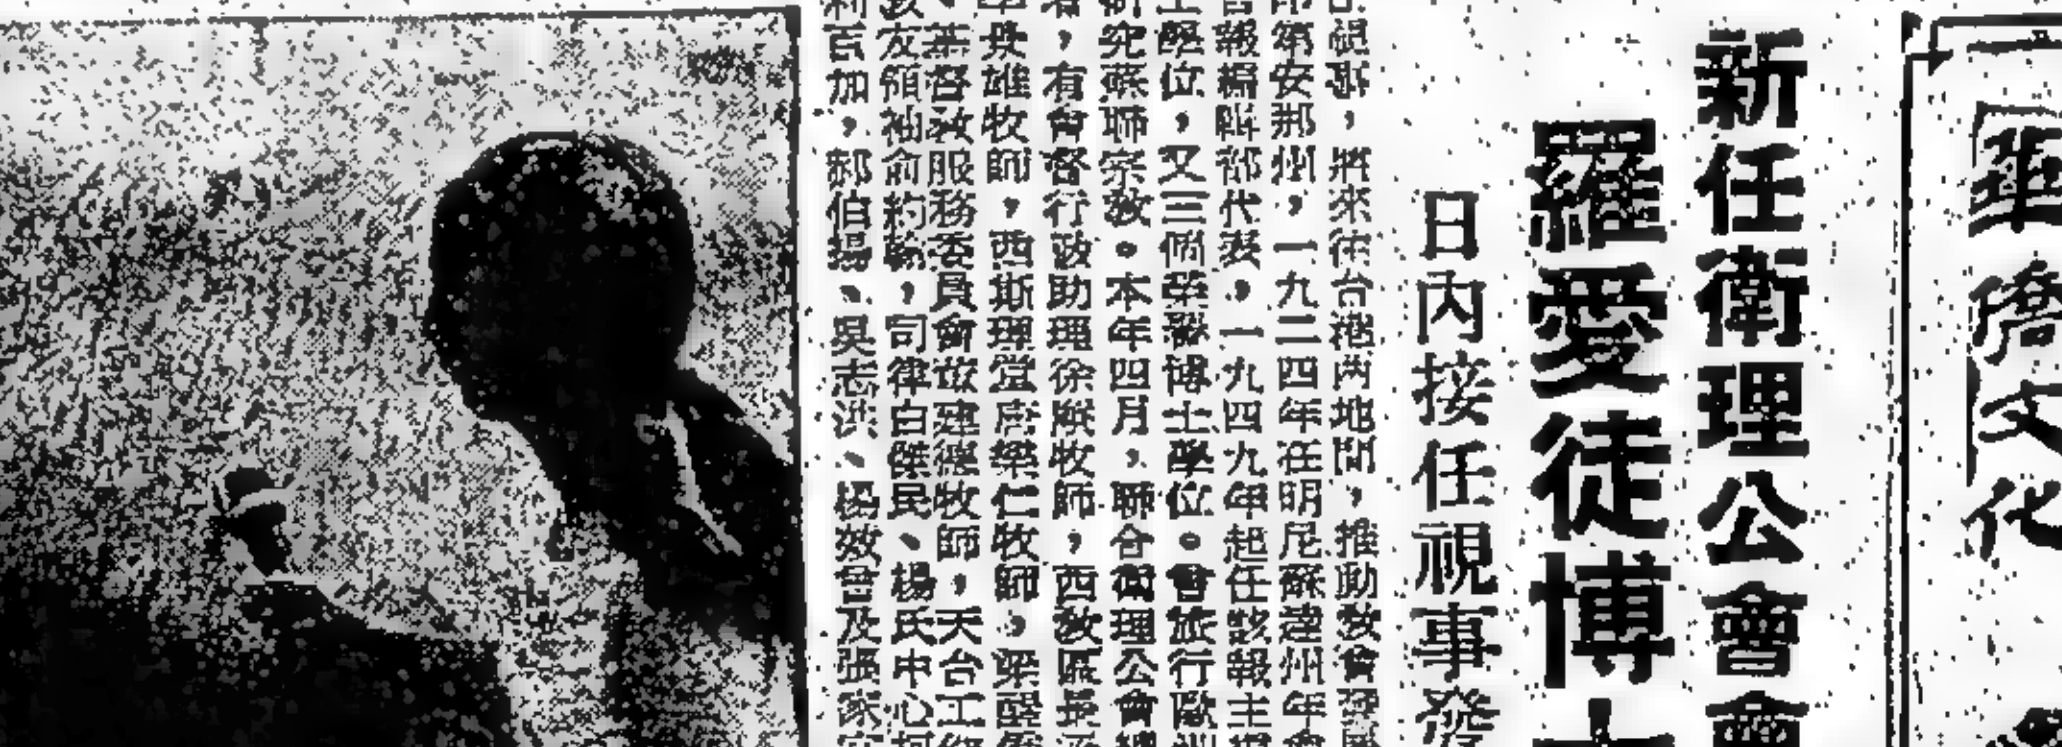 華僑文化
新任衛理公會會
羅愛徒博士
日內接任視事發
視事，將來往台港兩地間，推動教會
第安那州，一九二四年在明尼蘇達州年會
報編輯部代表，一九四九年起任該報主
學位，又三個榮譽博士學位。曾旅行歐
研究蘇聯宗教。本年四月，聯合衛理公會
，有會督行政助理徐 牧師，西教區長
雄牧師，西斯理堂 樂仁牧師，梁醒
、基督教服務委員會 建德牧師，天台工
教友領袖俞約翰，司律白傑民、楊氏中心
百加，郝伯揚、吳志洪、楊效曾及張家